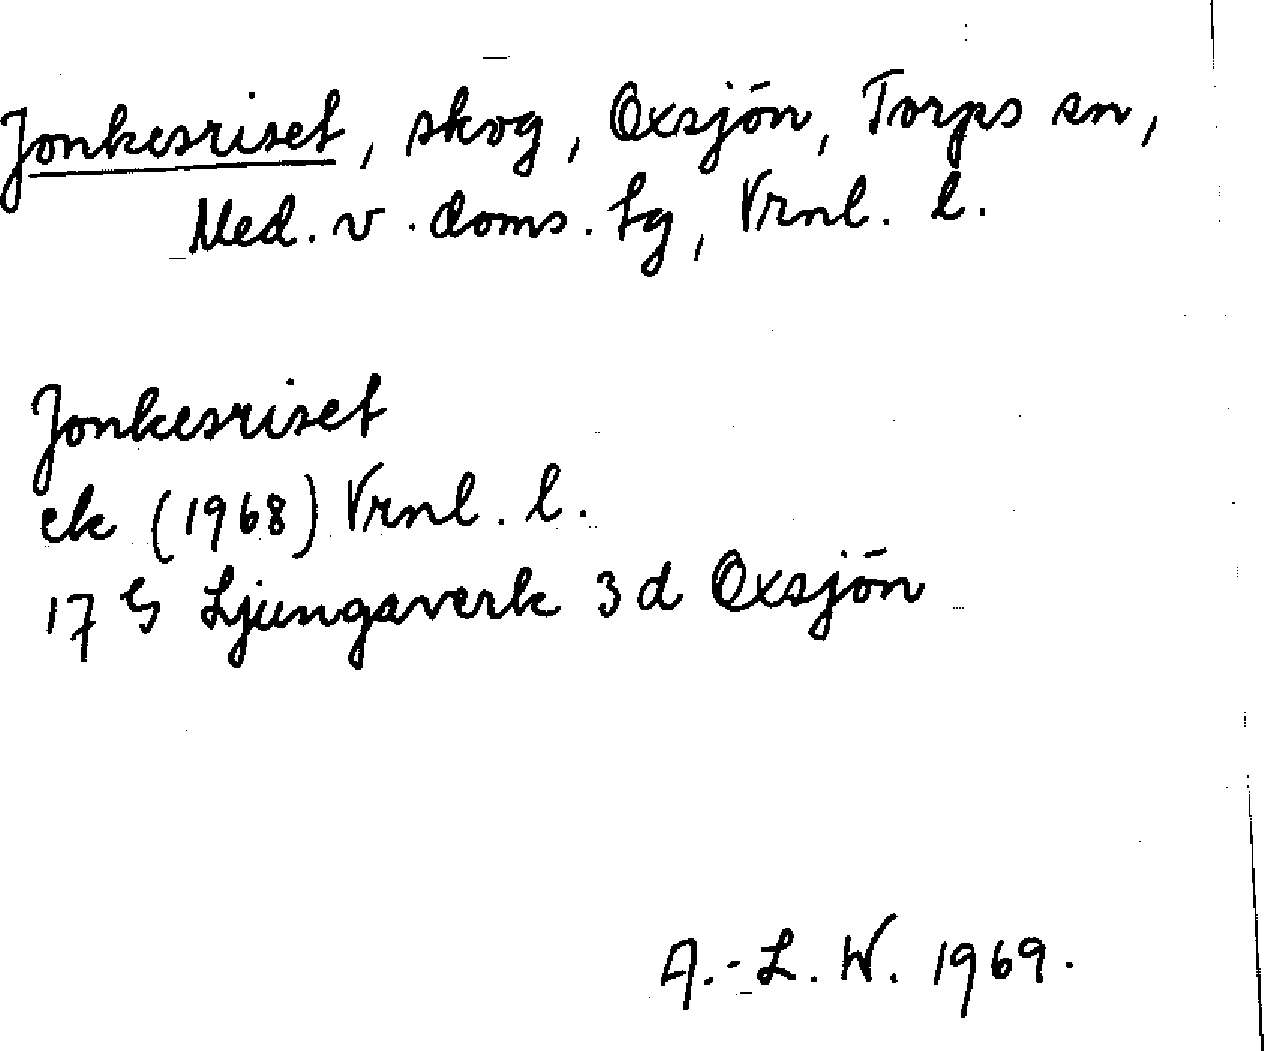 Jonkesriset, skog, Oxsjön, Torps sn,
Med. v. doms. tg, Vrnl. l.
Jonkesriset
ek (1968) Vrnl. l.
17 G Ljungaverk 3 d Oxsjön
A.-L. W. 1969.